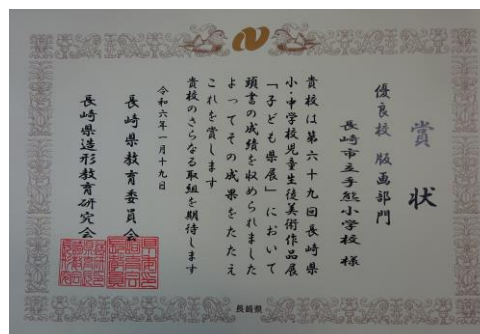 賞状
優良校 版画部門
長崎市立手熊小学校 様
貴校は第六十九回長崎県
小・中学校児童生徒美術作品展
「子ども県展」において
頭書の成績を収められました
よってその成果をたたえ
これを賞します
貴校のさらなる取組を期待します
令和六年一月十九日
長崎県教育委員会
長崎県造形教育研究会
長崎県